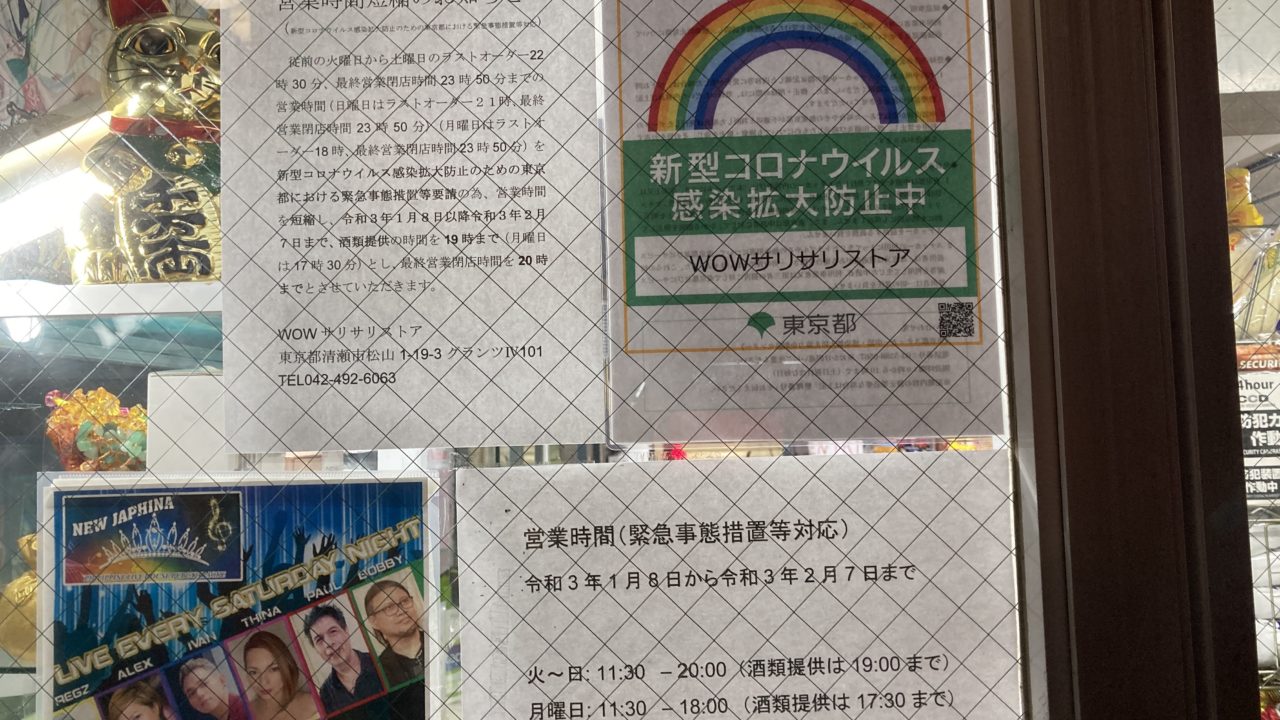 営業時間短縮のお知らせ
(新型コロナウイルス感染拡大防止のための東京都における緊急事態措置等対応)
従前の火曜日から土曜日のラストオーダー22
時30分、最終営業閉店時間23時50分までの
営業時間(日曜日はラストオーダー21時、最終
営業閉店時間23時50分)(月曜日はラストオ
ーダー18時、最終営業閉店時間23時50分)を
新型コロナウイルス感染拡大防止のための東京
都における緊急事態措置等要請の為、営業時間
を短縮し、令和3年1月8日以降令和3年2月
7日まで、酒類提供の時間を19時まで(月曜日
は17時30分)とし、最終営業閉店時間を20時
までとさせていただきます。
WOWサリサリストア
東京都清瀬市松山1-19-3グランツⅣ101
TEL042-492-6063
新型コロナウイルス
感染拡大防止中
WOWサリサリストア
東京都
NEW JAPHINA
LIVE EVERY SATURDAY NIGHT
REGZ
ALEX
IVAN
THINA
PAUL
BOBBY
営業時間(緊急事態措置等対応)
令和3年1月8日から令和3年2月7日まで
火～日: 11:30 –20:00 (酒類提供は19:00まで)
月曜日: 11:30 –18:00 (酒類提供は17:30まで)
SECURI
4hour
CCD
防犯カ
作動
防犯装置
作動中